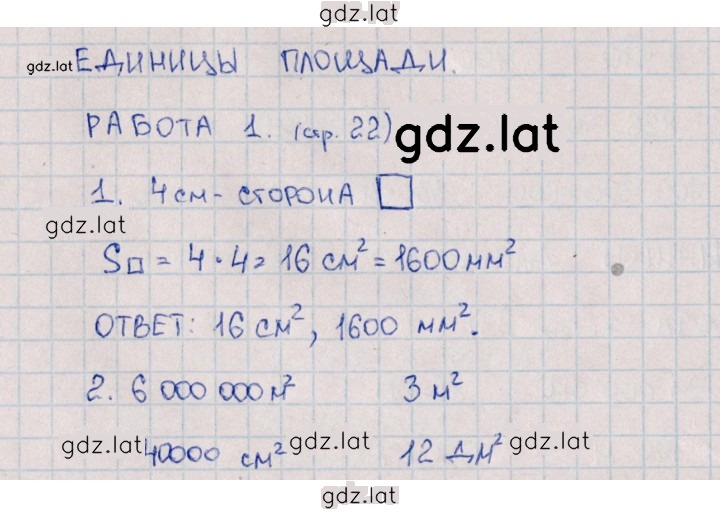 gdz.lat
gdz.lat ЕДИНИЦЫ ПЛОЩАДИ.
РАБОТА 1. (стр. 22) gdz.lat
1. 4 см - СТОРОНА □
gdz.lat
S□ = 4 · 4 = 16 см² = 1600 мм²
ОТВЕТ: 16 см², 1600 мм².
2. 6 000 000 м² 3 м²
gdz.lat 40000 см² gdz.lat 12 дм² gdz.lat
gdz.lat